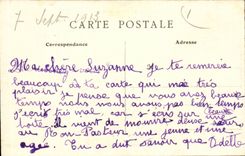 7 Sept 1913
CARTE POSTALE
Correspondance
Adresse
Ma chère Suzanne je te remerie
beaucoup de la carte qui ma très
plaisir je pense que vous avez beau
temps nous nous avons pas bien temps
j'ecris très mal car j'ecris sur
vient de mourire deux sœur
au Bon Pasteur une jeune et une
agé. En a dut savoir que Odette